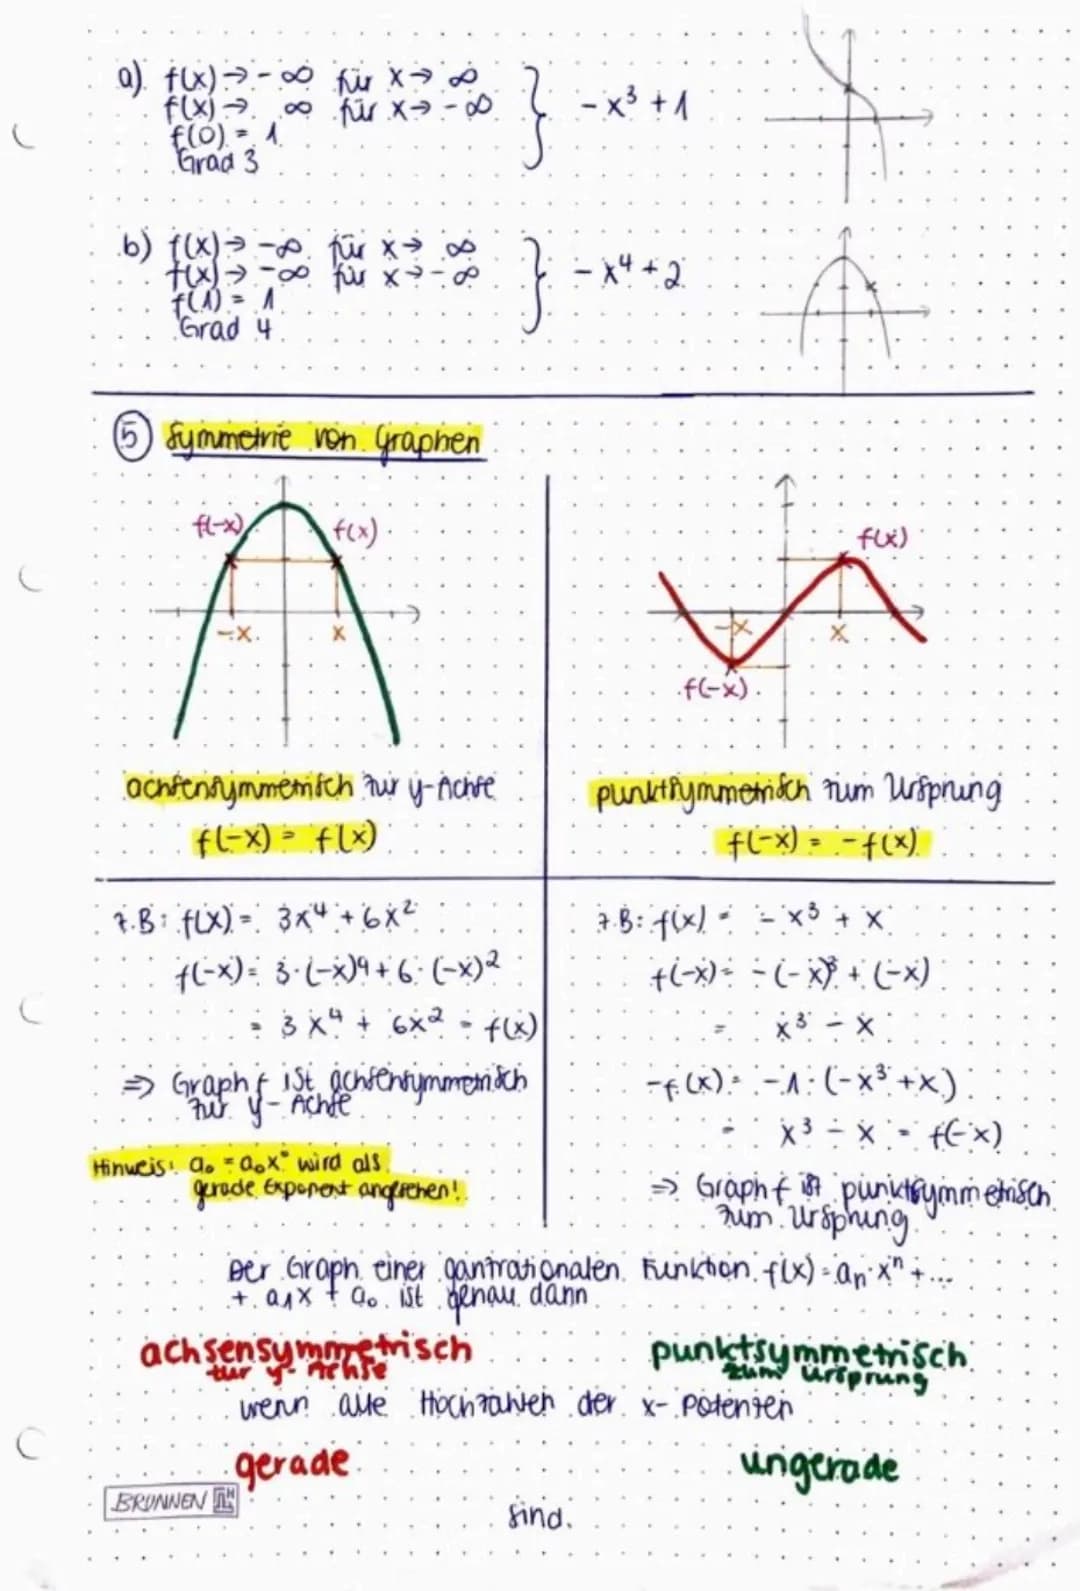 a) f(x) → -∞ für x → ∞
f(x) → ∞ für x → -∞
f(0) = 1
Grad 3
-x³ + 1
b) f(x) → -∞ für x → ∞
f(x) → -∞ für x → -∞
f(1) = 1
Grad 4
-x⁴ + 2
⑤ Symmetrie von Graphen
f(-x) f(x)
-x x
f(x)
-x x
f(-x)
achsensymmetrisch zur y-Achse
f(-x) = f(x)
punktsymmetrisch zum Ursprung
f(-x) = -f(x)
z.B: f(x) = 3x⁴ + 6x²
f(-x) = 3·(-x)⁴ + 6·(-x)²
= 3x⁴ + 6x² = f(x)
⇒ Graph f ist achsensymmetrisch
zur y-Achse
Hinweis: a₀ = a₀x⁰ wird als
gerade Exponent angesehen!
z.B: f(x) = -x³ + x
f(-x) = -(-x)³ + (-x)
= x³ - x
-f(x) = -1·(-x³+x)
= x³ - x = f(-x)
⇒ Graph f ist punktsymmetrisch
zum Ursprung
Der Graph einer ganzrationalen Funktion f(x) = aₙ·xⁿ + ...
+ a₁x + a₀ ist genau dann
achsensymmetrisch
zur y-Achse
punktsymmetrisch
zum Ursprung
wenn alle Hochzahlen der x-Potenzen
gerade
ungerade
sind.
BRUNNEN